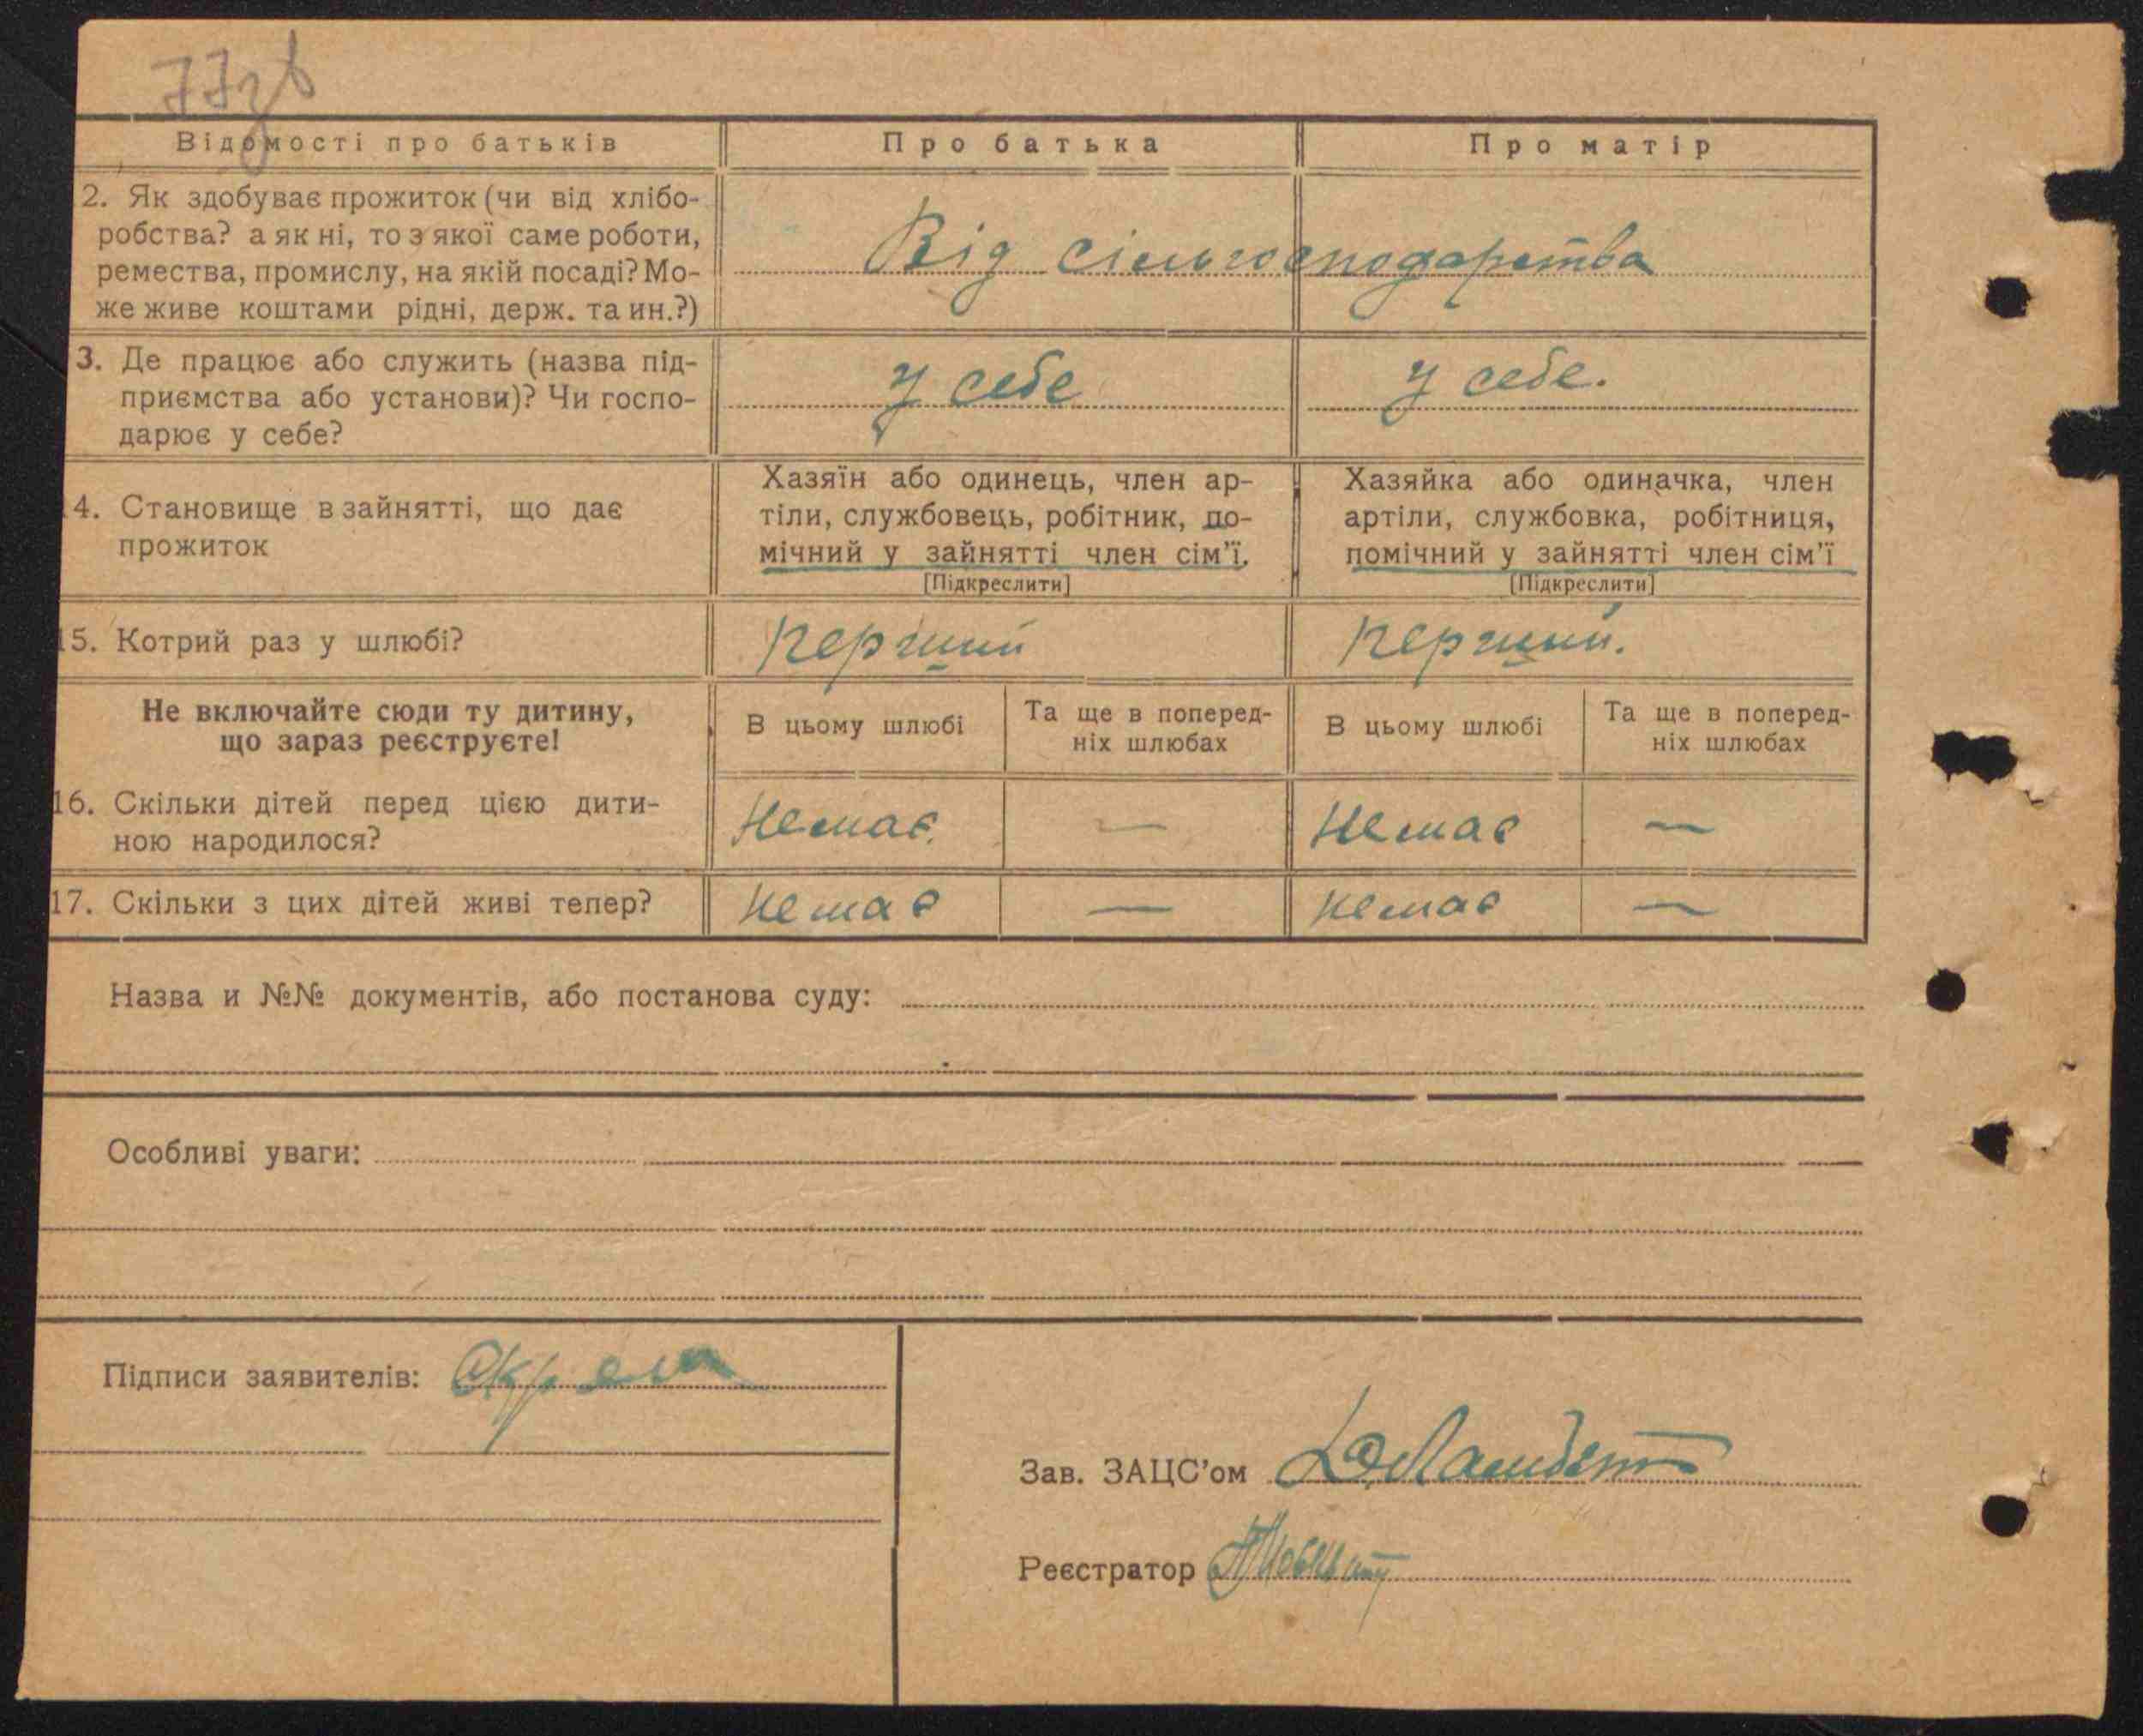 77зв
Відомості про батьків
Про батька
Про матір
2. Як здобуває прожиток (чи від хлібо-
робства? а як ні, то з якої саме роботи,
ремества, промислу, на якій посаді? Мо-
же живе коштами рідні, держ. та ин.?)
Від сільгосподарства
3. Де працює або служить (назва під-
приємства або установи)? Чи госпо-
дарює у себе?
У себе
У себе.
4. Становище в зайнятті, що дає
прожиток
Хазяїн або одинець, член ар-
тіли, службовець, робітник, по-
мічний у зайнятті член сім'ї.
[Підкреслити]
Хазяйка або одиначка, член
артіли, службовка, робітниця,
помічний у зайнятті член сім'ї
[Підкреслити]
15. Котрий раз у шлюбі?
перший
перший.
Не включайте сюди ту дитину,
що зараз реєструєте!
В цьому шлюбі
Та ще в поперед-
ніх шлюбах
В цьому шлюбі
Та ще в поперед-
ніх шлюбах
16. Скільки дітей перед цією дити-
ною народилося?
Немає.
—
Немає
—
17. Скільки з цих дітей живі тепер?
немає
—
немає
—
Назва и №№ документів, або постанова суду:
Особливі уваги:
Підписи заявителів:
Зав. ЗАЦС'ом
Реєстратор